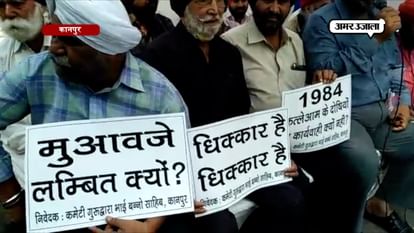 कानपुर
अमर उजाला
मुआवजे
लम्बित क्यों?
निवेदक : कमेटी गुरुद्वारा भाई बन्नो साहिब, कानपुर
धिक्कार है
धिक्कार है
कमेटी गुरुद्वारा भाई बन्नो साहिब, कानपुर
1984
कत्लेआम के दोषियों
कार्यवाही क्यों नहीं?
कमेटी गुरुद्वारा भाई बन्नो साहिब,